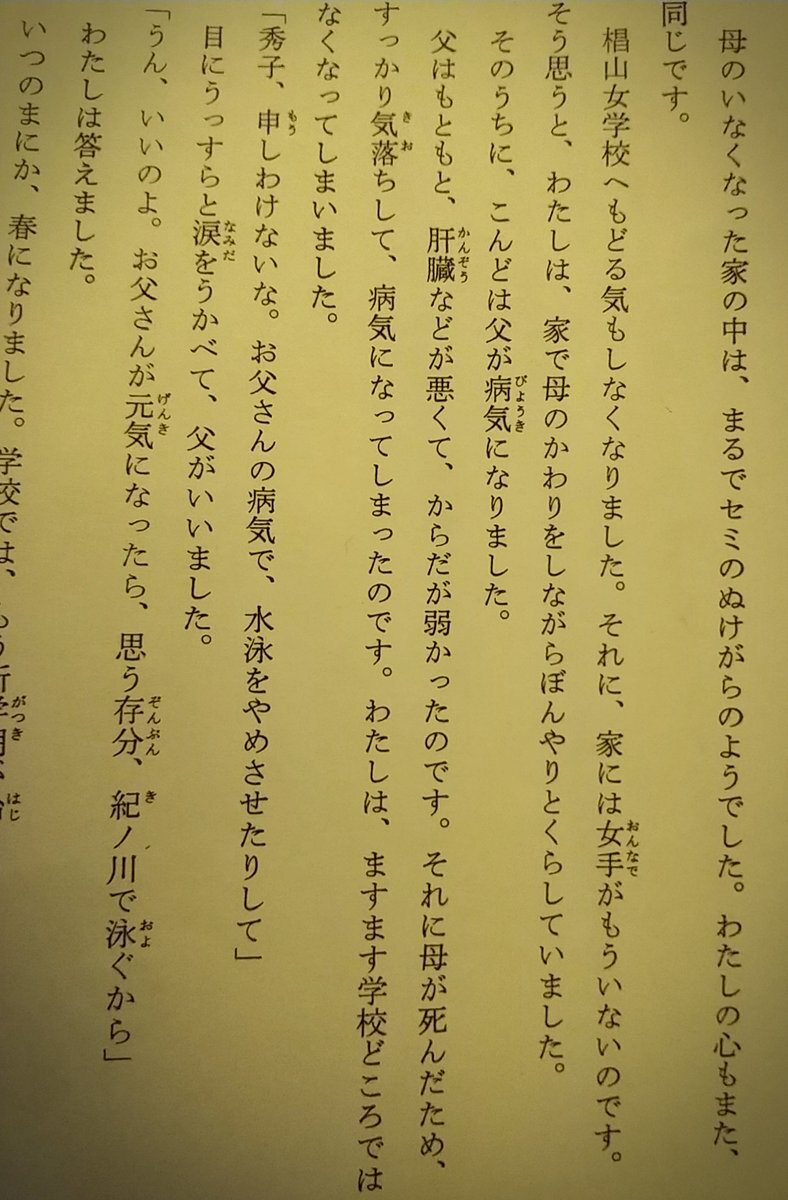 母のいなくなった家の中は、まるでセミのぬけがらのようでした。わたしの心もまた、
同じです。
椙山女学校へもどる気もしなくなりました。それに、家には女手がもういないのです。
そう思うと、わたしは、家で母のかわりをしながらぼんやりとくらしていました。
そのうちに、こんどは父が病気になりました。
父はもともと、肝臓などが悪くて、からだが弱かったのです。それに母が死んだため、
すっかり気落ちして、病気になってしまったのです。わたしは、ますます学校どころでは
なくなってしまいました。
「秀子、申しわけないな。お父さんの病気で、水泳をやめさせたりして」
目にうっすらと涙をうかべて、父がいいました。
「うん、いいのよ。お父さんが元気になったら、思う存分、紀ノ川で泳ぐから」
わたしは答えました。
いつのまにか、春になりました。学校では、